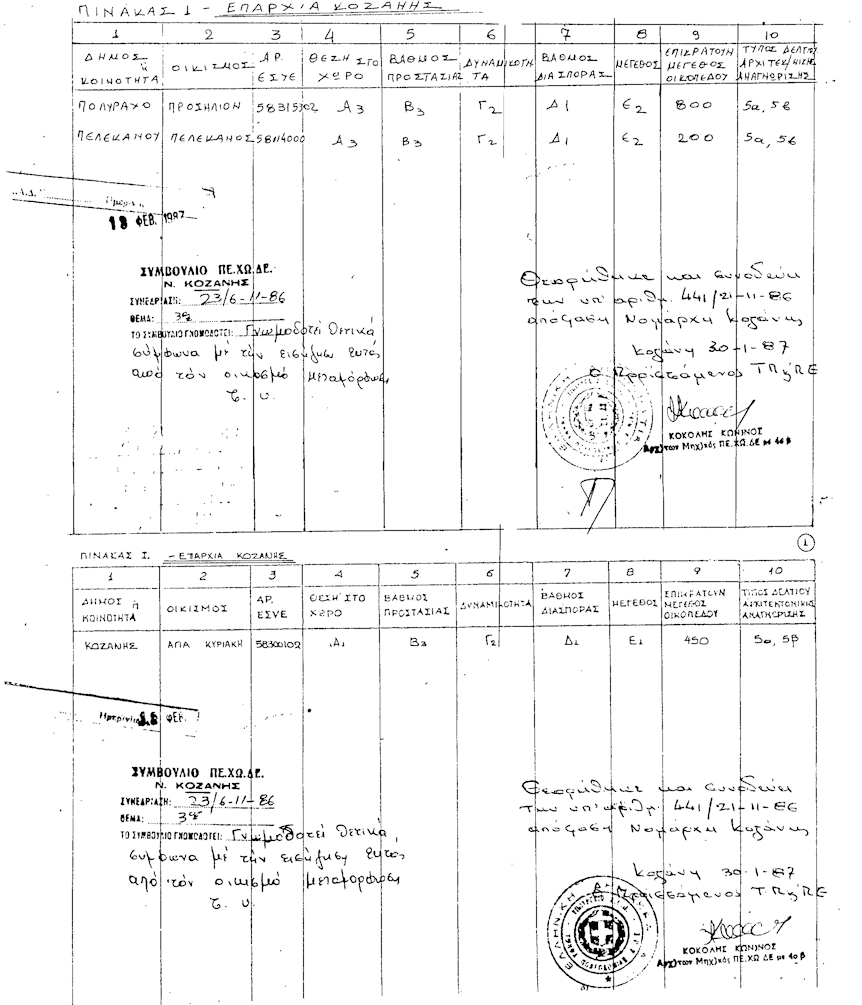 ΠΙΝΑΚΑΣ 1 - ΕΠΑΡΧΙΑ ΚΟΖΑΝΗΣ
1 2 3 4 5 6 7 8 9 10
ΔΗΜΟΣ ή ΚΟΙΝΟΤΗΤΑ ΟΙΚΙΣΜΟΣ ΑΡ. ΕΣΥΕ ΘΕΣΗ ΣΤΟ ΧΩΡΟ ΒΑΘΜΟΣ ΠΡΟΣΤΑΣΙΑΣ ΔΥΝΑΜΙΚΟΤΗΤΑ ΒΑΘΜΟΣ ΔΙΑΣΠΟΡΑΣ ΜΕΓΕΘΟΣ ΕΠΙΚΡΑΤΟΥΝ ΜΕΓΕΘΟΣ ΟΙΚΟΠΕΔΟΥ ΤΥΠΟΣ ΔΕΛΤΙΟΥ ΑΡΧΙΤΕΚ/ΝΙΚΗΣ ΑΝΑΓΝΩΡΙΣΗΣ
ΠΟΛΥΡΑΧΟ ΠΡΟΣΗΛΙΟΝ 58315902 Α3 Β3 Γ2 Δ1 Ε2 800 5α, 5β
ΠΕΛΕΚΑΝΟΥ ΠΕΛΕΚΑΝΟΣ 58114000 Α3 Β3 Γ2 Δ1 Ε2 200 5α, 5β
18 ΦΕΒ. 1987
ΣΥΜΒΟΥΛΙΟ ΠΕ.ΧΩ.ΔΕ.
Ν. ΚΟΖΑΝΗΣ
ΣΥΝΕΔΡΙΑΣΗ: 23/6-11-86
ΘΕΜΑ: 3º
ΤΟ ΣΥΜΒΟΥΛΙΟ ΓΝΩΜΟΔΟΤΕΙ: Γνωμοδοτεί θετικά
σύμφωνα με την εισήγηση εκτός
από τόν οικισμό Μεταμόρφωση
Θεωρήθηκε και συνοδεύει
την υπ' αριθμ. 441/21-11-86
απόφαση Νομάρχη Κοζάνης
Κοζάνη 30-1-87
Ο Προϊστάμενος ΤΠ&ΠΕ
ΚΟΚΟΛΗΣ ΚΩΝ/ΝΟΣ
Αρχ/των Μηχ/κός ΠΕ.ΧΩ.ΔΕ με 4ο β
1
ΠΙΝΑΚΑΣ Ι. - ΕΠΑΡΧΙΑ ΚΟΖΑΝΗΣ
1 2 3 4 5 6 7 8 9 10
ΔΗΜΟΣ ή ΚΟΙΝΟΤΗΤΑ ΟΙΚΙΣΜΟΣ ΑΡ. ΕΣΥΕ ΘΕΣΗ ΣΤΟ ΧΩΡΟ ΒΑΘΜΟΣ ΠΡΟΣΤΑΣΙΑΣ ΔΥΝΑΜΙΚΟΤΗΤΑ ΒΑΘΜΟΣ ΔΙΑΣΠΟΡΑΣ ΜΕΓΕΘΟΣ ΕΠΙΚΡΑΤΟΥΝ ΜΕΓΕΘΟΣ ΟΙΚΟΠΕΔΟΥ ΤΥΠΟΣ ΔΕΛΤΙΟΥ ΑΡΧΙΤΕΚΤΟΝΙΚΗΣ ΑΝΑΓΝΩΡΙΣΗΣ
ΚΟΖΑΝΗΣ ΑΓΙΑ ΚΥΡΙΑΚΗ 58300102 Α1 Β3 Γ2 Δ1 Ε1 450 5α, 5β
ΦΕΒ.
ΣΥΜΒΟΥΛΙΟ ΠΕ.ΧΩ.ΔΕ.
Ν. ΚΟΖΑΝΗΣ
ΣΥΝΕΔΡΙΑΣΗ: 23/6-11-86
ΘΕΜΑ: 3º
ΤΟ ΣΥΜΒΟΥΛΙΟ ΓΝΩΜΟΔΟΤΕΙ: Γνωμοδοτεί θετικά,
σύμφωνα με την εισήγηση εκτός
από τόν οικισμό Μεταμόρφωση
Θεωρήθηκε και συνοδεύει
την υπ' αριθμ. 441/21-11-86
απόφαση Νομάρχη Κοζάνης
Κοζάνη 30-1-87
Προϊστάμενος ΤΠ&ΠΕ
ΚΟΚΟΛΗΣ ΚΩΝ/ΝΟΣ
Αρχ/των Μηχ/κός ΠΕ.ΧΩ.ΔΕ με 4ο β